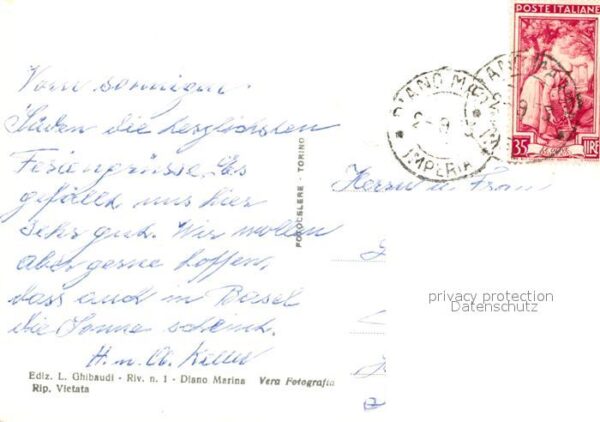 Vom sonnigen
Süden die herzlichsten
Feriengrüsse. Es
gefällt uns hier
sehr gut. Wir wollen
aber gerne hoffen,
dass auch in Basel
die Sonne scheint.
H. u. A. Keller
Ediz. L. Ghibaudi - Riv. n. 1 - Diano Marina Vera Fotografia
Rip. Vietata
FOTOCELERE - TORINO
POSTE ITALIANE
35 LIRE
DIANO MARINA
2-9
IMPERIA
Herrn u. Frau
privacy protection
Datenschutz